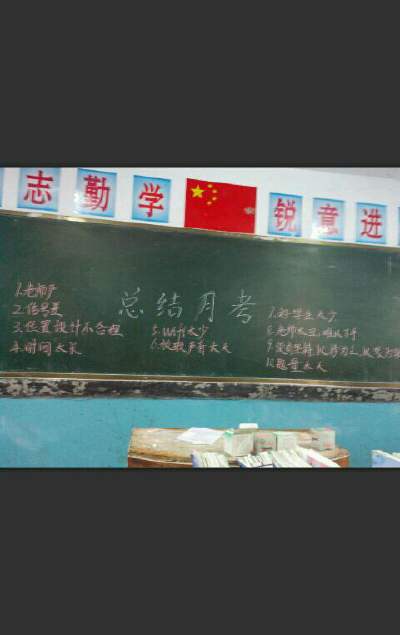 志勤学 锐意进
总结月考
1.老师严
2.信号差
3.位置设计不合理
4.时间太紧
5.Wifi太少
6.收敛声音太大
7.好学生太少
8.老师太丑,难以下手
10.题量太大